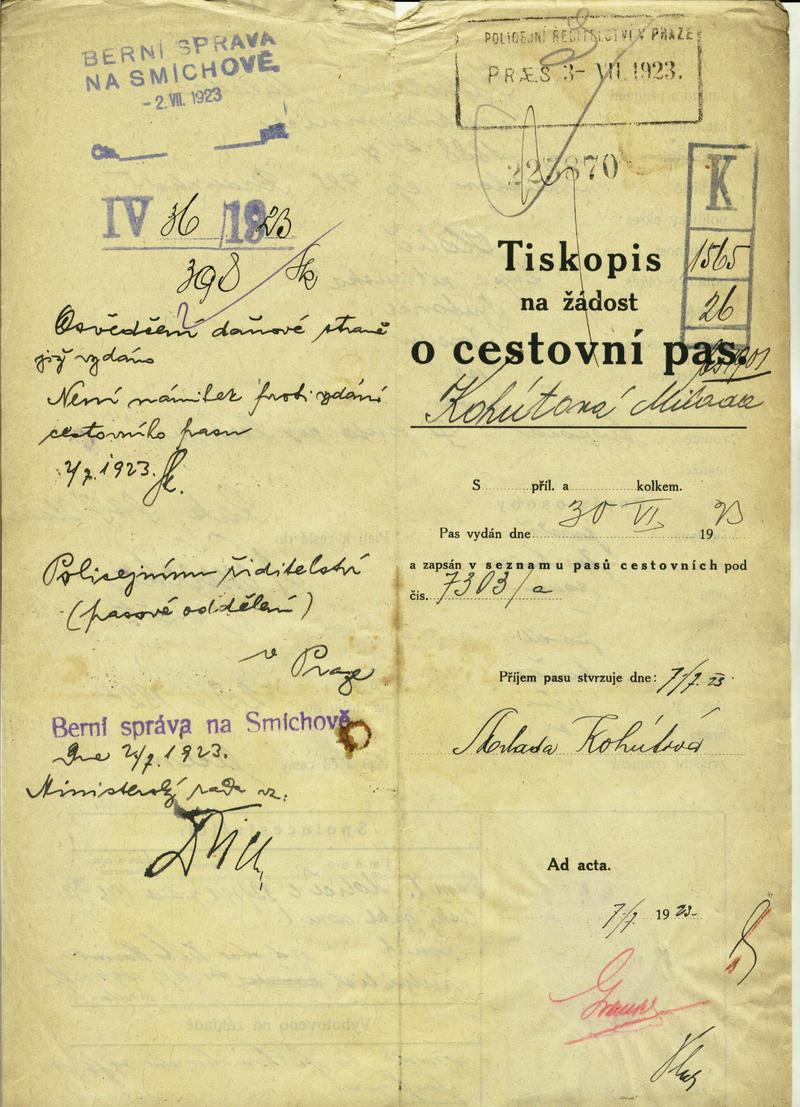 BERNÍ SPRÁVA
NA SMÍCHOVĚ
- 2. VII. 1923
IV 36 / 1923
398
Osvědčení daňové straně
již vydáno
Není námitek proti vydání
cestovního pasu
2/7. 1923.
Policejnímu řiditelství
(pasové oddělení)
v Praze
Berní správa na Smíchově
Dne 2/7. 1923.
Ministerský rada vz.
POLICEJNÍ ŘEDITELSTVÍ V PRAZE
PRÆS. 3- VII. 1923.
223870
K
1565
26
Tiskopis
na žádost
o cestovní pas.
Kohútová Milada
S příl. a kolkem.
Pas vydán dne 30 VI. 1923
a zapsán v seznamu pasů cestovních pod
čís. 7303/a
Příjem pasu stvrzuje dne: 7/7. 23
Milada Kohútová
Ad acta.
7/7. 1923.